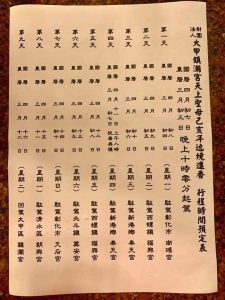 財團法人大甲鎮瀾宮天上聖母己亥年遶境進香 行程時間預定表
國曆四月初七日
農曆三月初三日 晚上十時零分起駕
第一天 國曆 四月 農曆 三月 (星期一) 駐駕彰化市 南瑤宮
第二天 國曆 四月 農曆 三月 (星期二) 駐駕西螺鎮 福興宮
第三天 國曆 四月 農曆 三月 (星期三) 駐駕新港鄉 奉天宮
第四天 國曆 四月 農曆 三月 上午八時 祝壽典禮 (星期四) 駐駕新港鄉 奉天宮
第五天 國曆 四月 農曆 三月 (星期五) 駐駕西螺鎮 福興宮
第六天 國曆 四月 農曆 三月 (星期六) 駐駕北斗鎮 奠安宮
第七天 國曆 四月 農曆 三月 (星期日) 駐駕彰化市 天后宮
第八天 國曆 四月 農曆 三月 (星期一) 駐駕清水區 朝興宮
第九天 國曆 四月 農曆 三月 (星期二) 回駕大甲區 鎮瀾宮